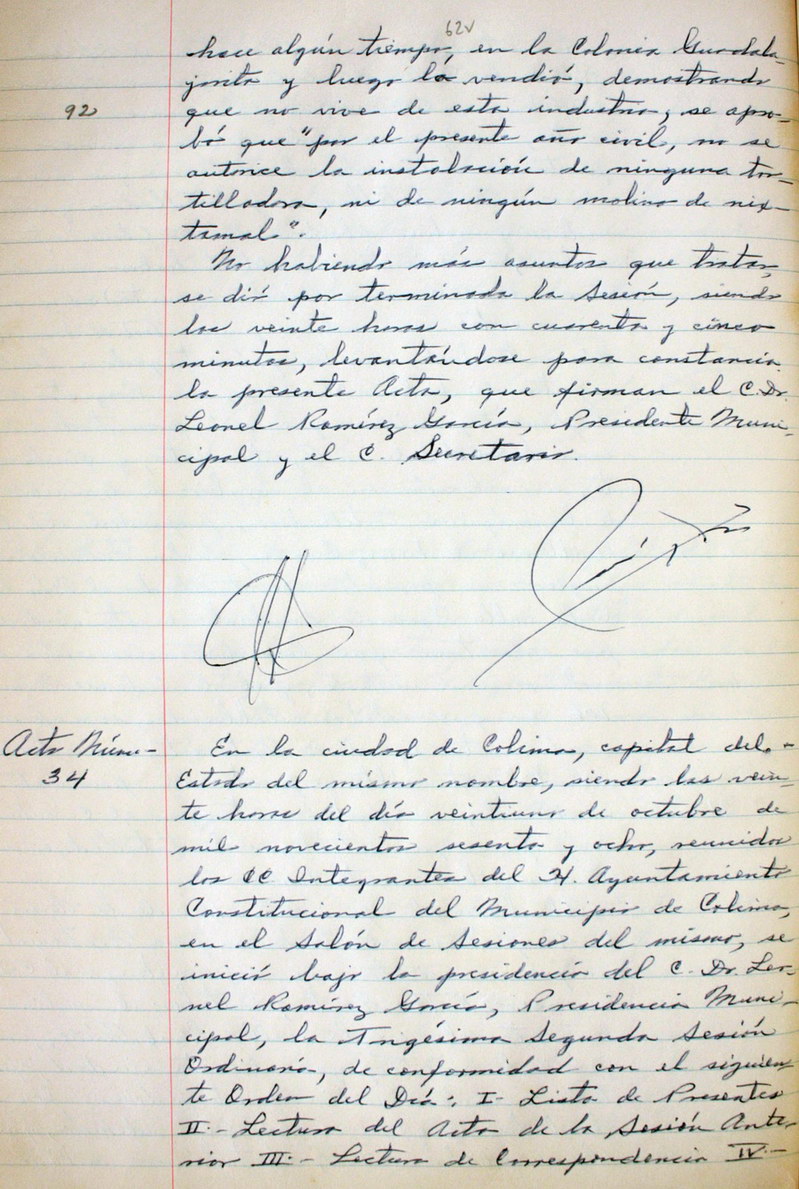 62v
hace algún tiempo, en la Colonia Guadala-
jarita y luego la vendió, demostrando
92
que no vive de esta industria, se apro-
bó que "por el presente año civil, no se
autorice la instalación de ninguna tor-
tilladora, ni de ningún molino de nix-
tamal".
No habiendo más asuntos que tratar,
se dió por terminada la Sesión, siendo
las veinte horas con cuarenta y cinco
minutos, levantándose para constancia
la presente Acta, que firman el C. Dr.
Leonel Ramírez García, Presidente Muni-
cipal y el C. Secretario.
Acta Núme-
34
En la ciudad de Colima, capital del
Estado del mismo nombre, siendo las vein-
te horas del día veintiuno de octubre de
mil novecientos sesenta y ocho, reunidos
los CC. Integrantes del H. Ayuntamiento
Constitucional del Municipio de Colima,
en el Salón de Sesiones del mismo, se
inició bajo la presidencia del C. Dr. Leo-
nel Ramírez García, Presidencia Muni-
cipal, la Trigésima Segunda Sesión
Ordinaria, de conformidad con el siguien-
te Orden del Día: I- Lista de Presentes
II.- Lectura del Acta de la Sesión Ante-
rior III.- Lectura de Correspondencia IV.-